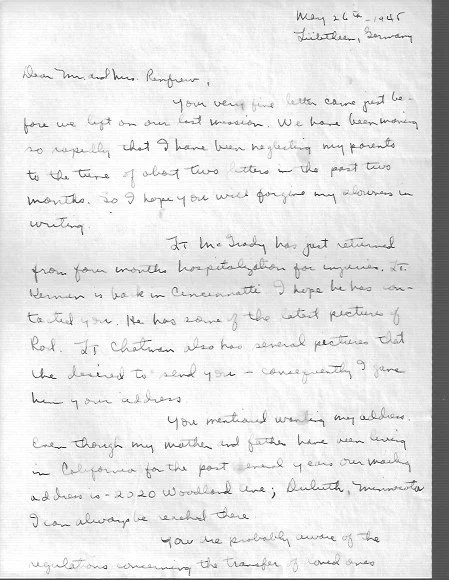 May 26th - 1945
Germany
Dear Mr. and Mrs. Renfrew,
Your very fine letter came just be-
fore we left on our last mission. We have been moving
so rapidly that I have been neglecting my parents
to the tune of about two letters in the past two
months. So I hope you will forgive my slowness in
writing.
Lt McGrady has just returned
from four months hospitalization for injuries. Lt.
is back in Cincinnatti I hope he has con-
tacted you. He has some of the latest pictures of
Rod. Lt. Chatman also has several pictures that
he desired to send you - consequently I gave
him your address
You mentioned wanting my address.
Even though my mother and father have been living
in California for the past several years our mailing
address is - 2020 Woodland Ave; Duluth, Minnesota
I can always be reached there
You're probably aware of the
regulations concerning the transfer of loved ones